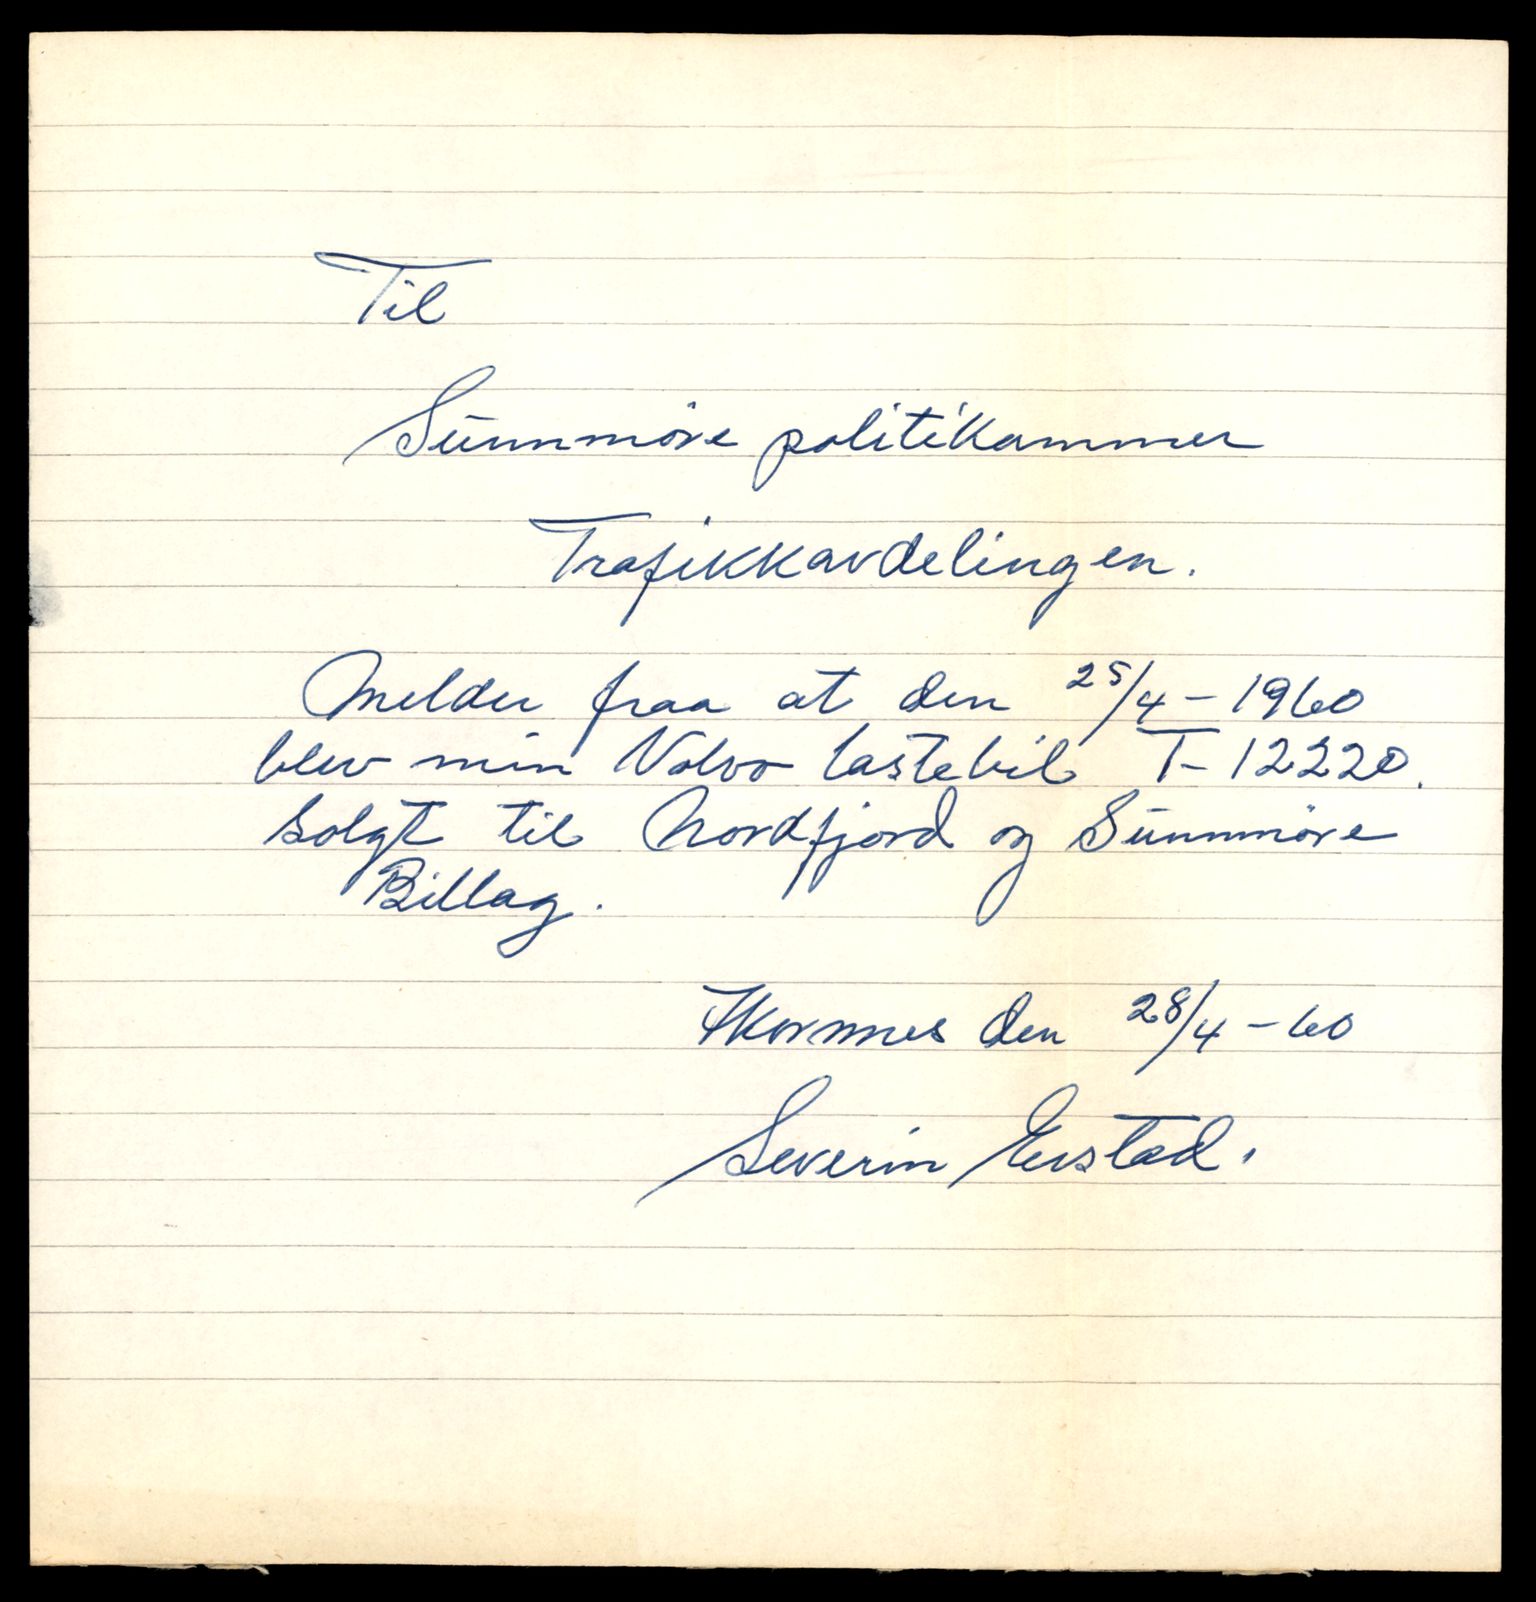 Til
Sunnmöre politikammer
Trafikkavdelingen.
Melder fraa at den 25/4 - 1960
blev min Volvo lastebil T-12220.
solgt til Nordfjord og Sunnmöre
Billag.
Ikornnes den 28/4 - 60
Severin Erstad.